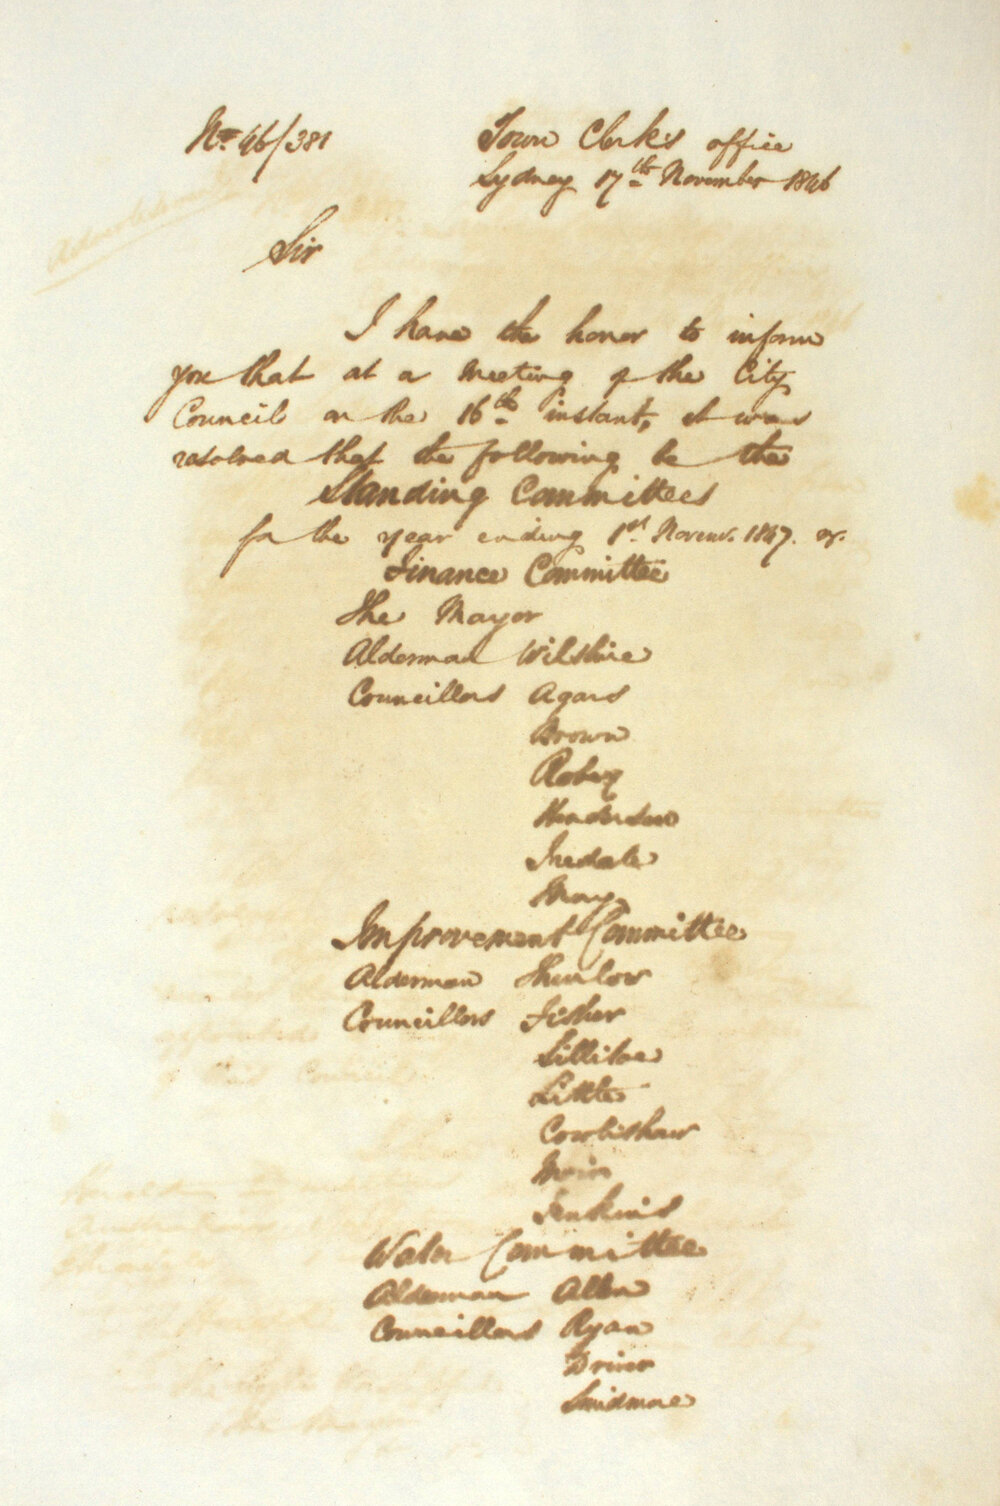 No. 46/381
Town Clerk's office
Sydney 17th November 1846
Sir
I have the honor to inform
you that at a Meeting of the City
Council on the 16th instant, it was
resolved that the following be the
Standing Committees
for the year ending 1st Novemr. 1847.
Finance Committee
The Mayor
Alderman Wilshire
Councillors Agars
Brown
Robey
Henderson
Iredale
May
Improvement Committee
Alderman Thurlow
Councillors Fisher
Sillitoe
Little
Cowlishaw
Moir
Jenkins
Water Committee
Alderman Allen
Councillors Ryan
Driver
Smidmore